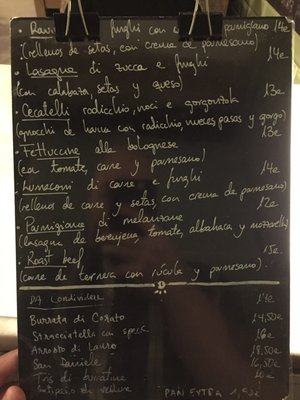 • Ravi funghi con crema parmigiano 14e
(rellenos de setas, con crema de parmesano)
• Lasagna di zucca e funghi 14e
(con calabaza, setas y queso)
• Cecatelli radicchio, noci e gorgonzola 13e
(gnocchi de harina con radicchio, nueces pasas y gorgo)
• Fettuccine alle bolognese 13e
(con tomate, carne y parmesano)
• Lumaconi di carne e funghi 14e
(rellenos de carne y setas, con crema de parmesano)
• Parmigiana di melanzane 12e
(lasagna de berenjena, tomate, albahaca y mozzarella)
• Roast beef 15e
(carne de ternera con rúcula y parmesano).
DA Condividere
Burrata di Corato 14e
Stracciatella con speck 14,50e
Arrosto di 16e
San Daniele 18,50e
Tris di burratine 16,50e
Antipasto di verdure 10e
PAN EXTRA 1,50e